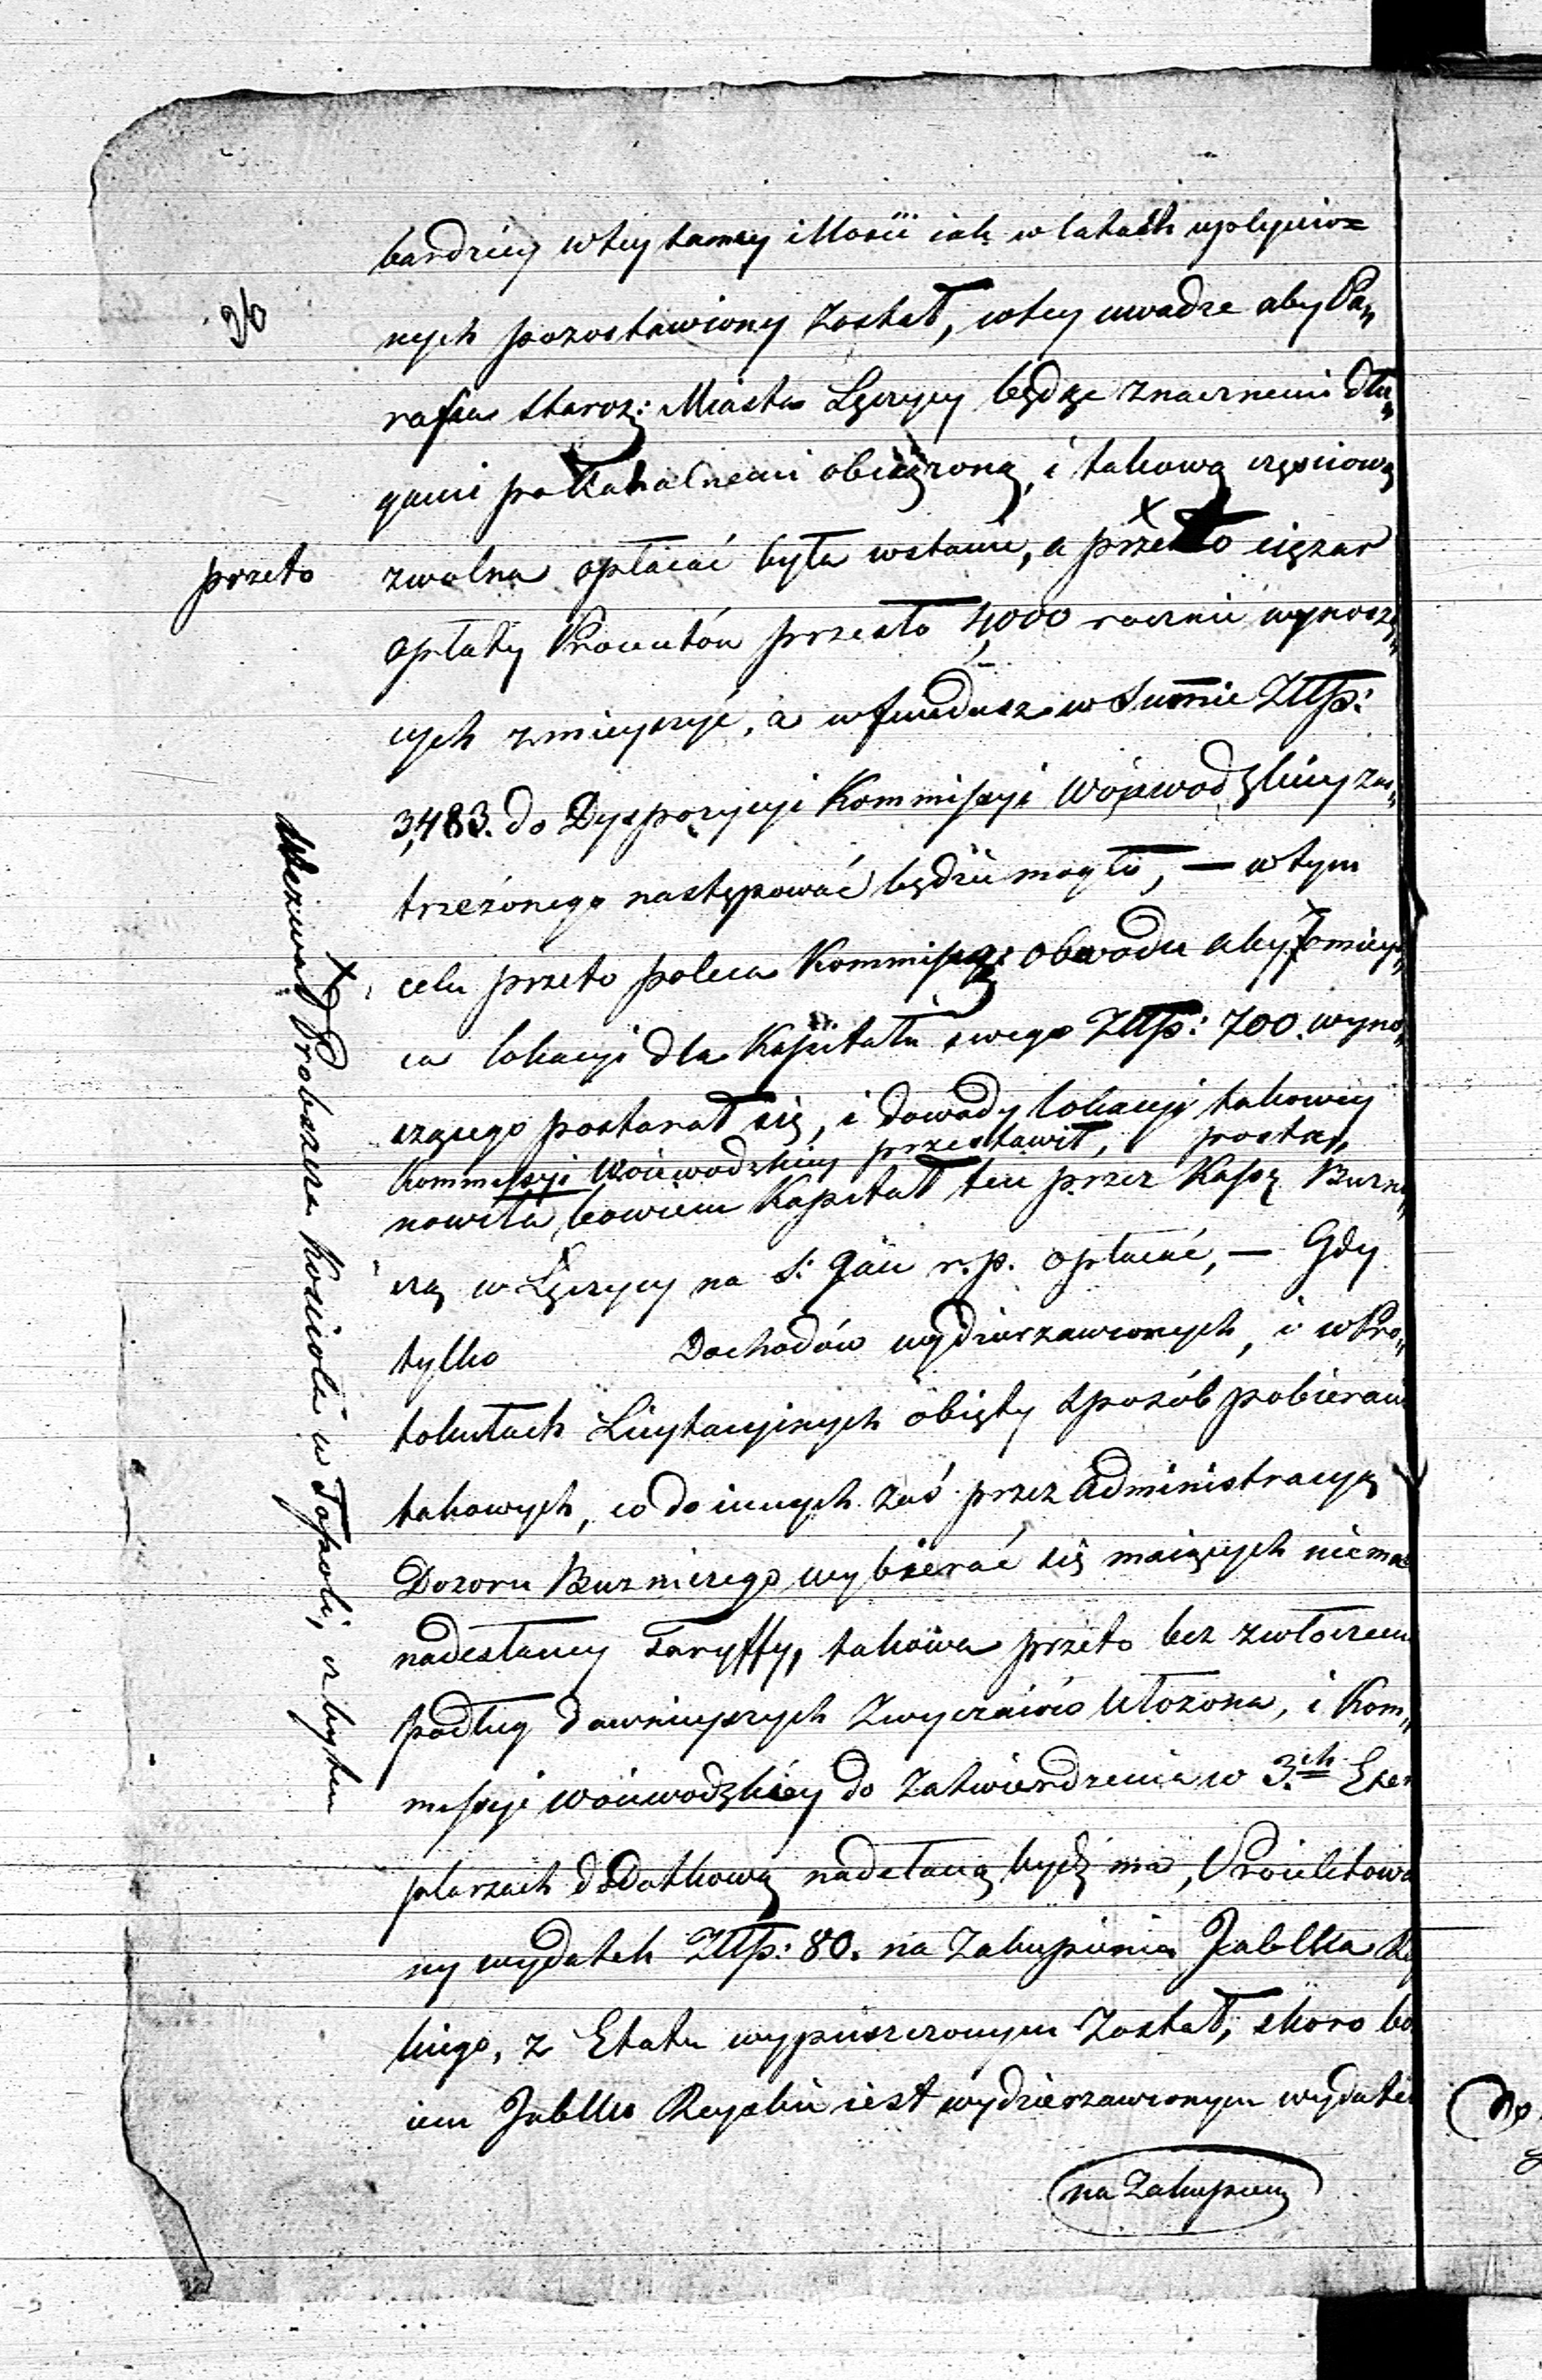 96
bardziey w tey samey illosci iak w latach upłynio=
nych pozostawiony został, w tey uwadze aby Pa„
rafia Staroz: Miasta Łęczycy będąc znacznemi dłu„
gami pokahalnemi obciążoną, i takową częsciową
zwolna opłacać była wstanie, a przeto cięzar
przeto
opłaty Procentów przeszło 4,000 rocznie wynoszą„
cych zmieyszyć, a w fundusz w Summie Złłp:
3,483. do Dyspozycyi Kommissyi Woiewodzkiey zas„
trzeżonego następować będzie mogło, — w tym
celu przeto poleca Kommissarz: Obwodu aby
ca lokacyi dla Kapitału swego Złłp: 700. wyno„
szącego postarał się, i dowody lokacyi takowey
Kommissyi Woiewodzkiey przestawił, posta„
nowiła bowiem Kapitał ten przez Kassę Buzni„
czą w Łęczycy na S: Jan r. p. opłacać, — Gdy
tylko Dochodów wydzierzawionych, i w Pro„
tokułach Licytacyinych obięty sposób pobierania
takowych, co do innych zaś przez Administracyą
Dozoru Buzniczego wybierać się maiących niema
nadesłaney Taryffy, takowa przeto bez zwłocznie
podług dawnieyszych Zwyczaiów Ułozona, i Kom„
missyi Woiewodzkiey do Zatwierdzenia w 3.ch Exem
plarzach dodatkową nadesłaną bydź ma, Proiektowa
ny wydatek Złłp: 80. na Zakupienie Jabłka Ray
kiego, z Etatu wypuszczonym Został, skoro bo
iem Jabłko Rayskie iest wydzierzawionym wydatek
na Zakupienie
Wezwał Proboszcza Kosciola w Topoli, o bytem